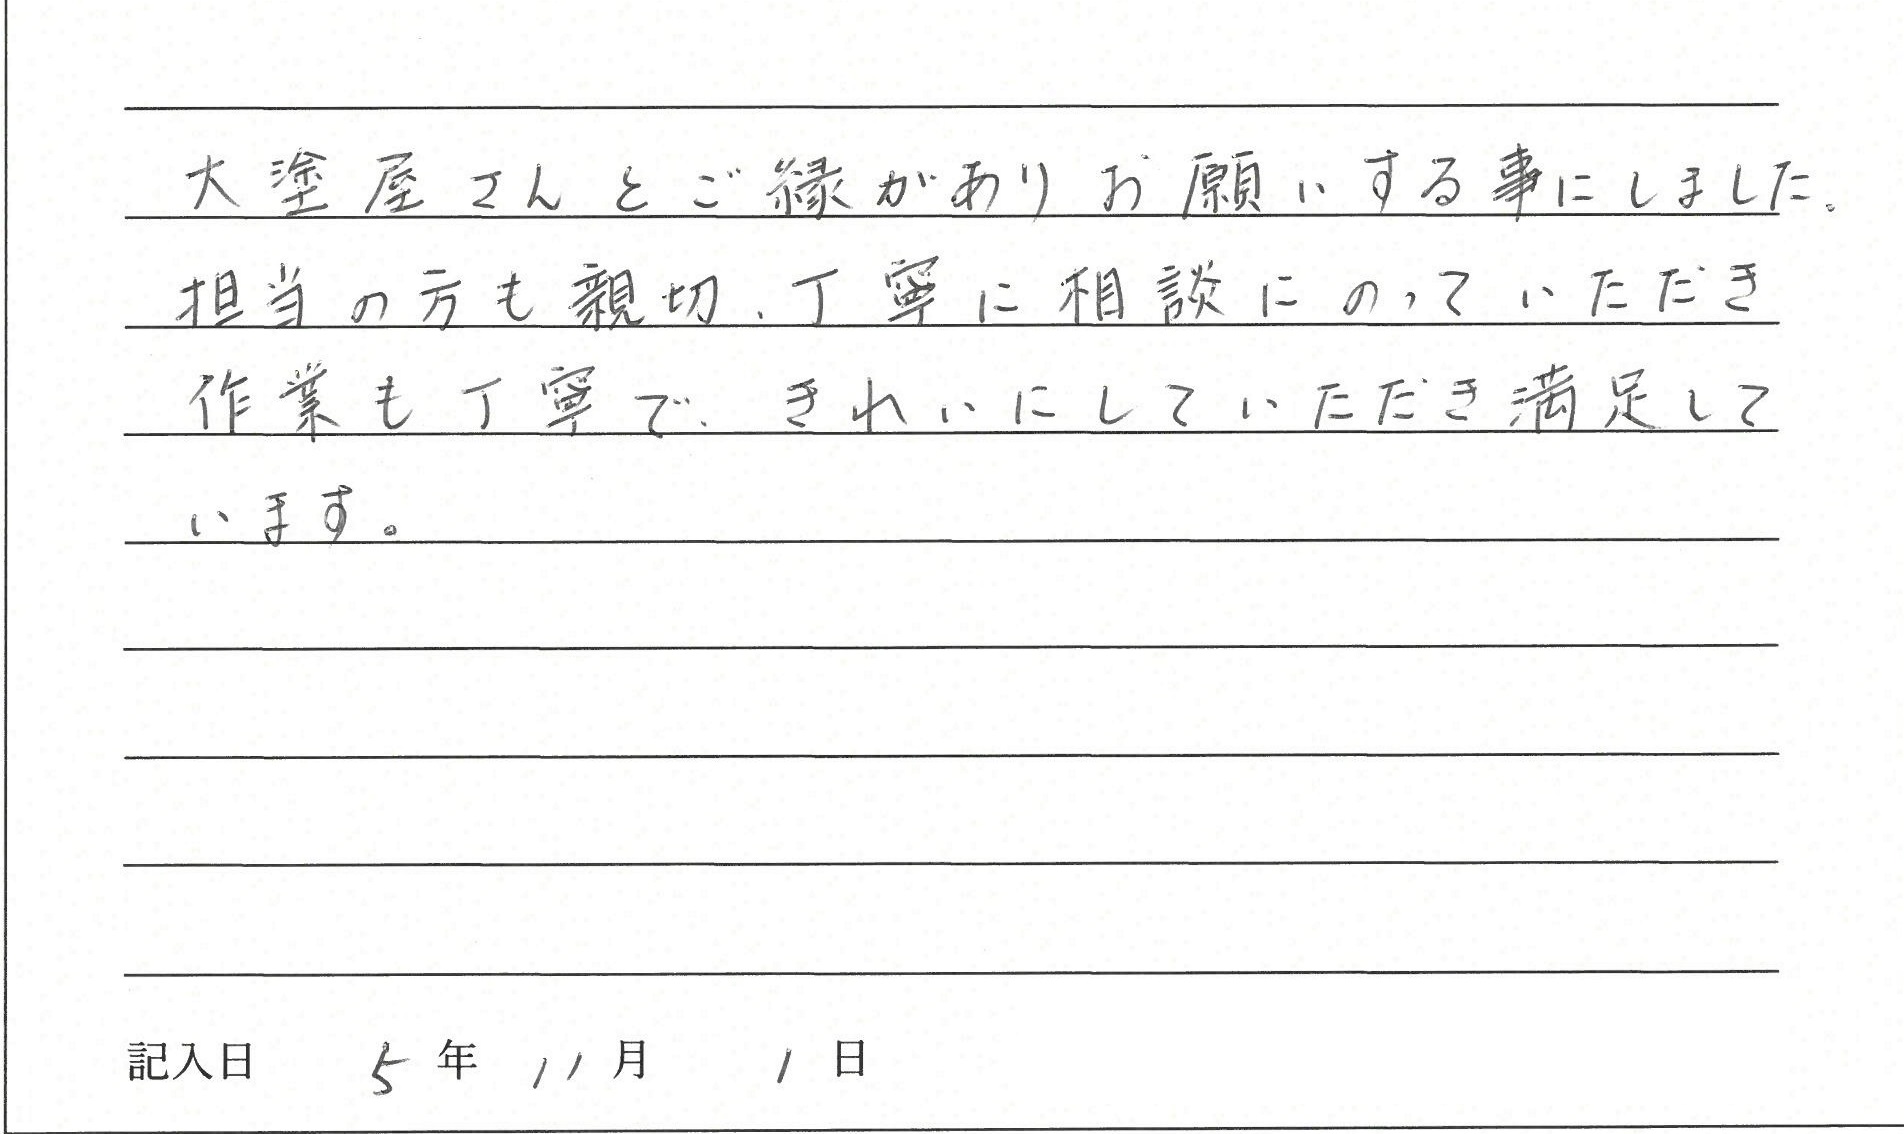 大塗屋さんとご縁がありお願いする事にしました。
担当の方も親切、丁寧に相談にのっていただき
作業も丁寧で、きれいにしていただき満足して
います。
記入日 5年 11月 1日